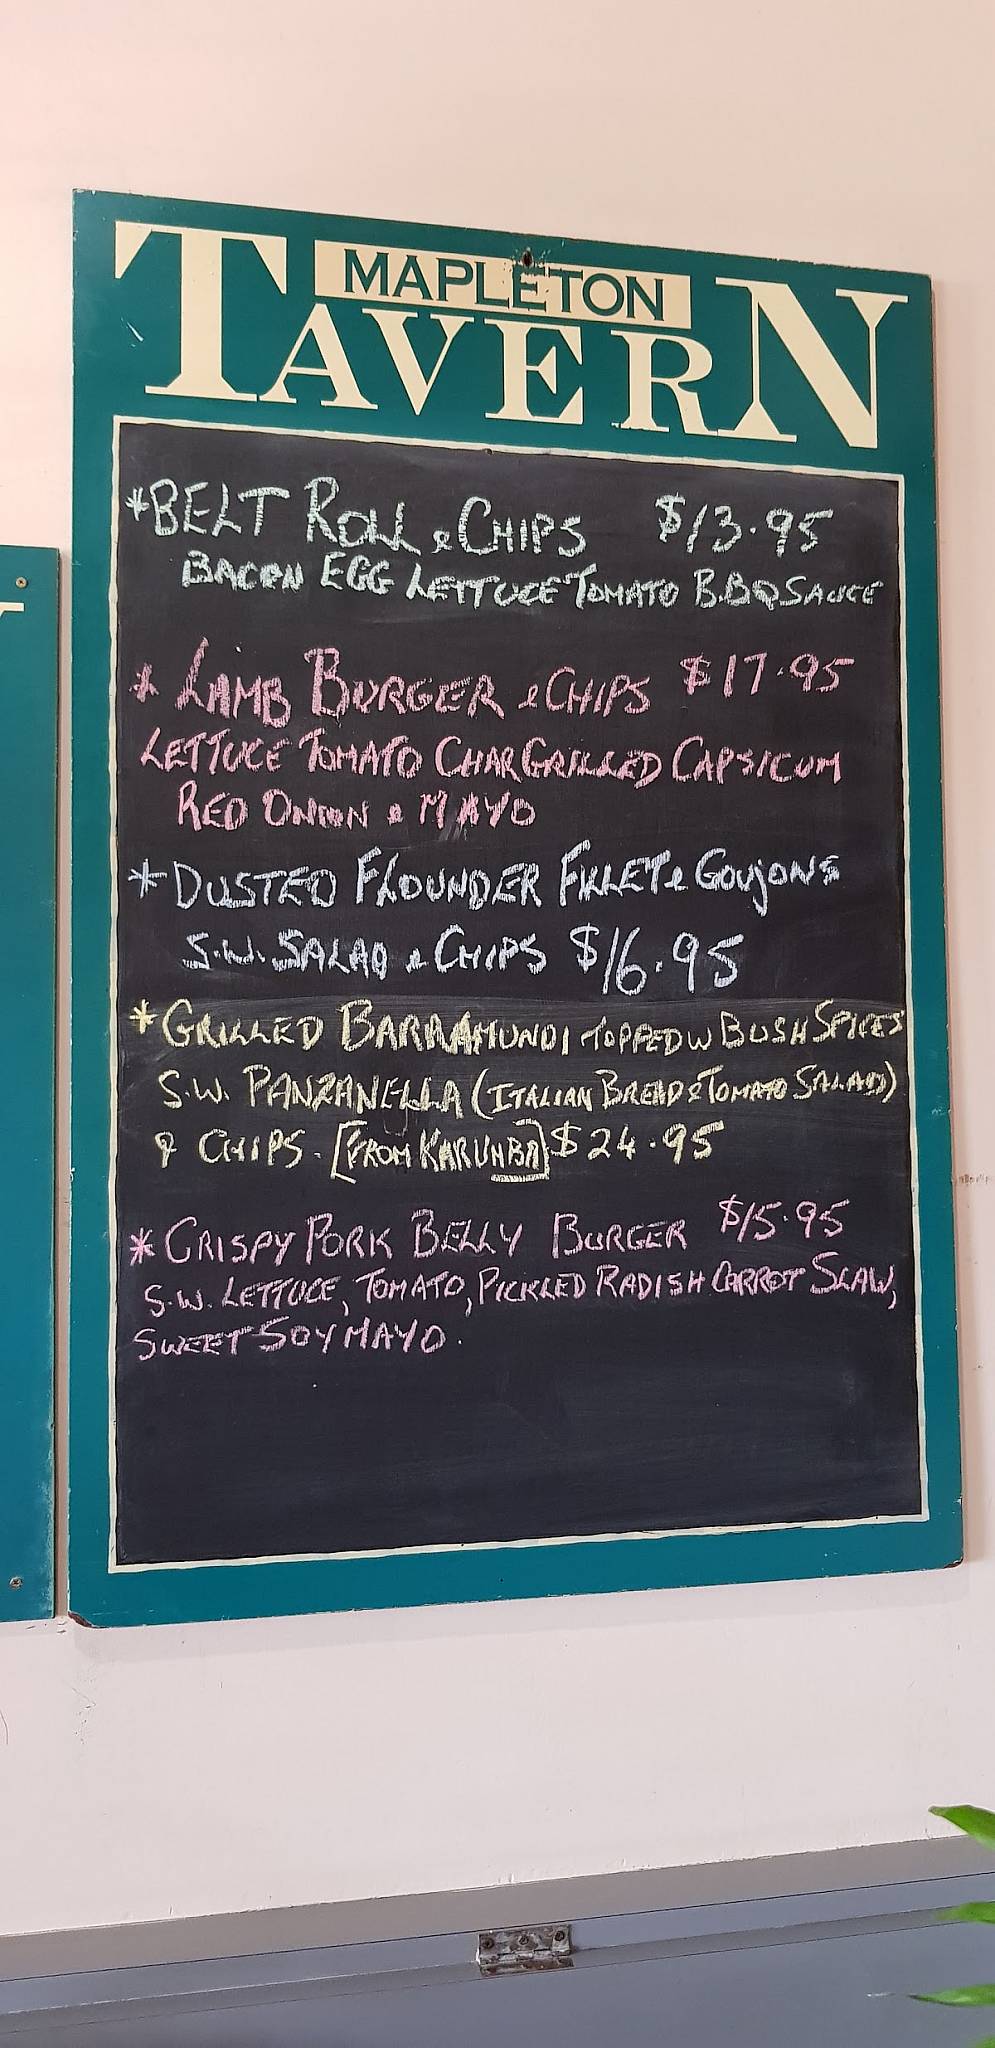 MAPLETON
TAVERN
*BELT ROLL & CHIPS $13.95
BACON EGG LETTUCE TOMATO B.B.Q SAUCE
* LAMB BURGER & CHIPS $17.95
LETTUCE TOMATO CHARGRILLED CAPSICUM
RED ONION & MAYO
*DUSTED FLOUNDER FILLET & GOUJONS
S.W. SALAD & CHIPS $16.95
*GRILLED BARRAMUNDI TOPPED W BUSH SPICES
S.W. PANZANELLA (ITALIAN BREAD & TOMATO SALAD)
& CHIPS. [FROM KARUMBA] $24.95
*CRISPY PORK BELLY BURGER $15.95
S.W. LETTUCE, TOMATO, PICKLED RADISH CARROT SLAW,
SWEET SOY MAYO.